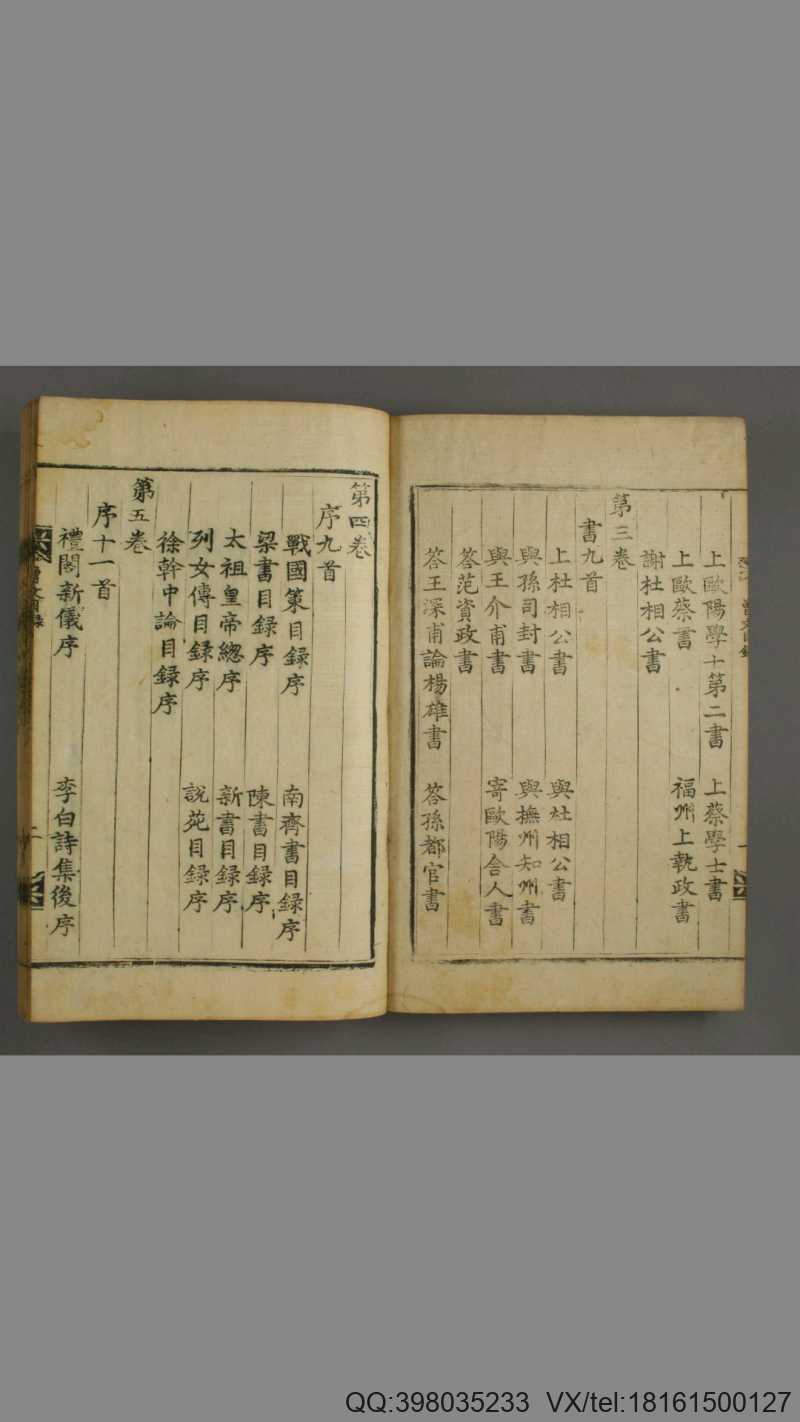 上歐陽學士第二書 上蔡學士書
上歐蔡書 福州上執政書
謝杜相公書
第三卷
書九首
上杜相公書 與杜相公書
與孫司封書 與撫州知州書
與王介甫書 寄歐陽舍人書
答范資政書
答王深甫論楊雄書 答孫都官書
第四卷
序九首
戰國策目録序 南齊書目録序
梁書目録序 陳書目録序
太祖皇帝總序 新書目録序
列女傳目録序 說苑目録序
徐幹中論目録序
第五卷
序十一首
禮閣新儀序 李白詩集後序
QQ:398035233 VX/tel:18161500127